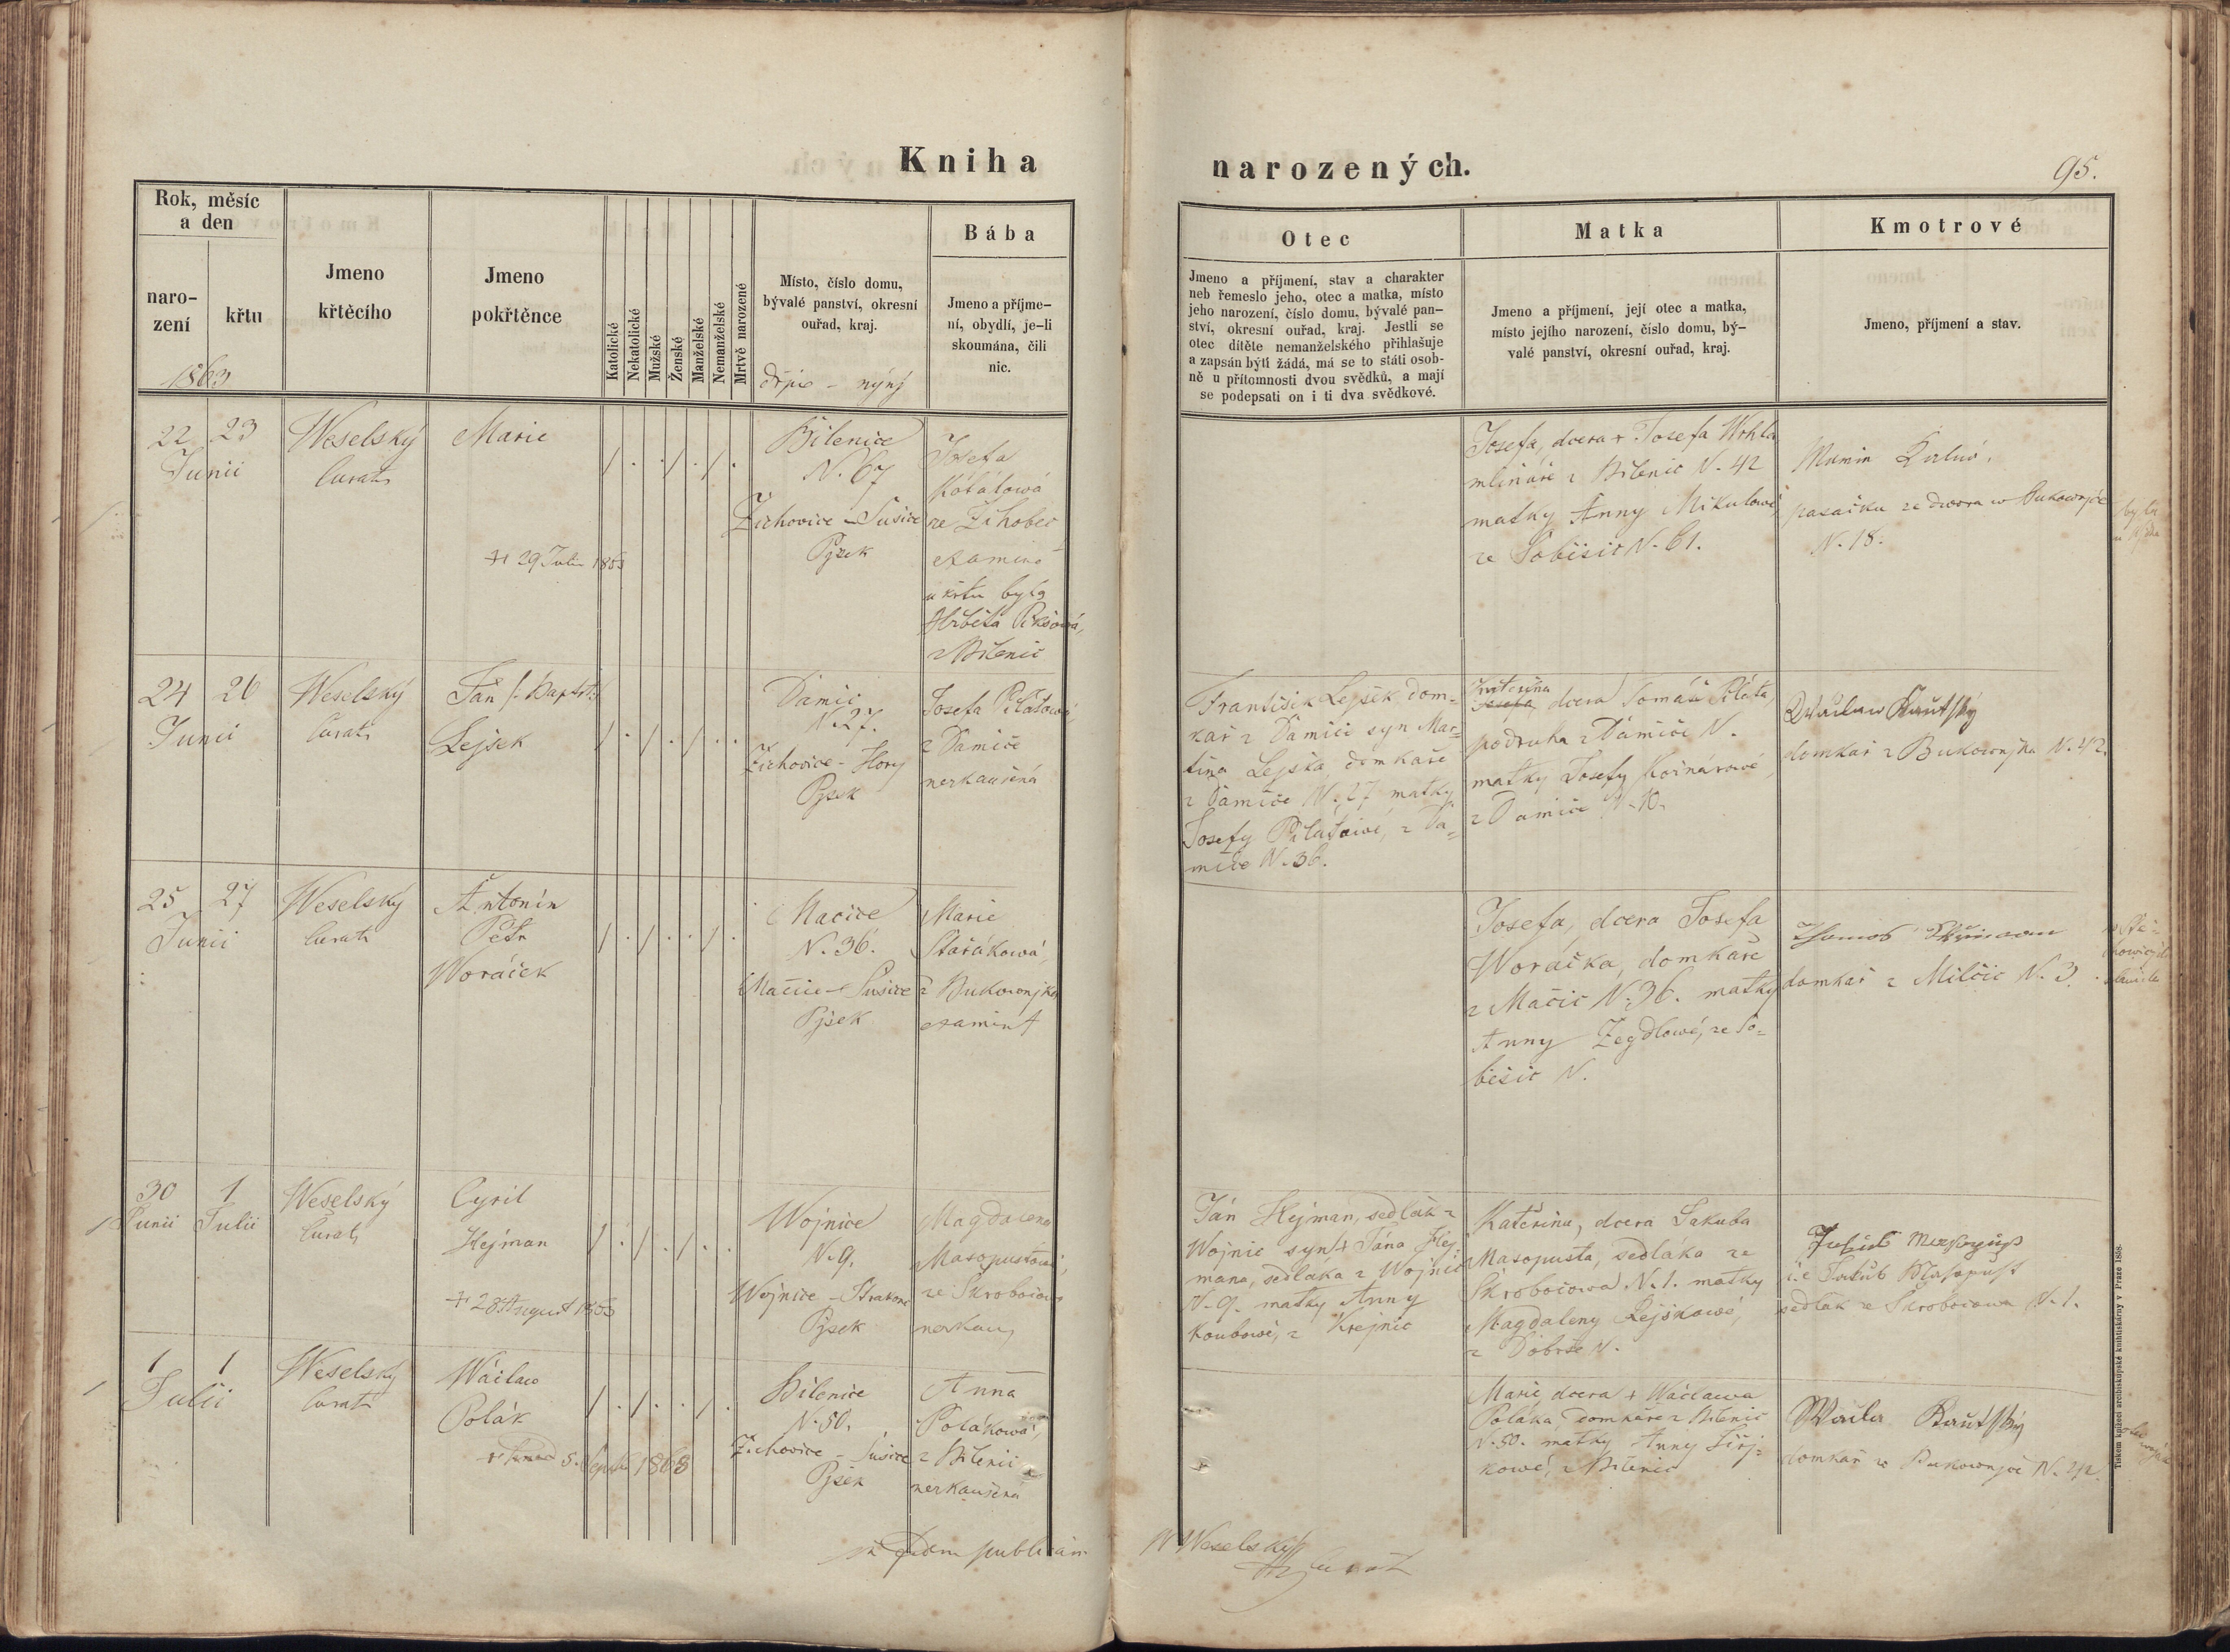 Kniha
narozených.
95.
Rok, měsíc
a den
naro-
zení
křtu
1863
Jmeno
křtěcího
Jmeno
pokřtěnce
Katolické
Nekatolické
Mužské
Ženské
Manželské
Nemanželské
Mrtvě narozené
Místo, číslo domu,
bývalé panství, okresní
ouřad, kraj.
Bába
Jmeno a příjme-
ní, obydlí, je-li
skoumána, čili
nic.
Otec
Jmeno a příjmení, stav a charakter
neb řemeslo jeho, otec a matka, místo
jeho narození, číslo domu, bývalé pan-
ství, okresní ouřad, kraj. Jestli se
otec dítěte nemanželského přihlašuje
a zapsán býti žádá, má se to státi osob-
ně u přítomnosti dvou svědků, a mají
se podepsati on i ti dva svědkové.
Matka
Jmeno a příjmení, její otec a matka,
místo jejího narození, číslo domu, bý-
valé panství, okresní ouřad, kraj.
Kmotrové
Jmeno, příjmení a stav.
22 23
Junii
Weselský
Curat
Marie
+ 29 Julii 1863
Bilenice
N. 67
Žichovice - Sušice
Pjsek
Josefa
ze Žihobec
u křtu byla
z Bilenic
Josefa, dcera + Josefa Wrhla
mlináře z Bilenic N. 42
matky Anny Mikulowé,
ze Sobišic N. 61.
ze dwora w Bukownjce
N. 18.
24 26
Junii
Weselský
Curat
Ján /: Bapt. :/
Lejsek
Damic
N. 27.
Žichovice - Hory
Pjsek
Josefa Pilátowá,
z Damiče
nezkaušená
František Lejsek, dom-
kař z Damiči syn Mar-
tina Lejska, domkaře
z Damiče N. 27 matky
Josefy Pilátowé, z Da-
miče N. 36.
Kateřina
Josefa, dcera Tomáše Piláta,
podruha z Damiči N.
matky Josefy
z Damiče N. 10.
Kautský
domkař z Bukownjka N. 42.
25 27
Junii
Weselský
Curat
Antonín
Petr
Woráček
Mačice
N. 36.
Mačice - Sušice
Pjsek
Marie
Staňkowá,
z Bukownjka
examin
Josefa, dcera Josefa
Woráčka, domkaře
z Mačic N. 36. matky
Anny Zegdlowé, ze So-
běšic N.
domkař z Milčic N. 3.
30 1
Junii Julii
Weselský
Curat
Cyril
Hejman
+ 28 August 1863
Wojnice
N. 9.
Wojnice - Strakonic
Pjsek
Magdalena
Masopustowá,
ze Skroboćowa
nezkau
Ján Hejman, sedlák z
Wojnic syn + Jána Hej-
mana, sedláka z Wojnic
N. 9. matky Anny
Koubowé, z Krejnic
Kateřina, dcera Jakuba
Masopusta, sedláka ze
Skroboćowa N. 1. matky
Magdaleny Rejškowé,
z Dobrše N.
i.e Jakub Masopust
sedlák ze Skroboćowa N. 1.
1 1
Julii
Weselský
Curat
Wáclaw
Polák
5. Septbr 1868
Bilenice
N. 50.
Žichovice - Sušice
Pjsek
Anna
Polákowá,
z Bilenic
nezkaušená
Marie, dcera + Wáclawa
Poláka, domkaře z Bilenic
N. 50. matky Anny Jiřj-
kowé, z Bilenic
Kautský
domkař w Bukownjce N. 42.
Weselský
Curat
Tiskem knížecí arcibiskupské knihtiskárny v Praze 1858.